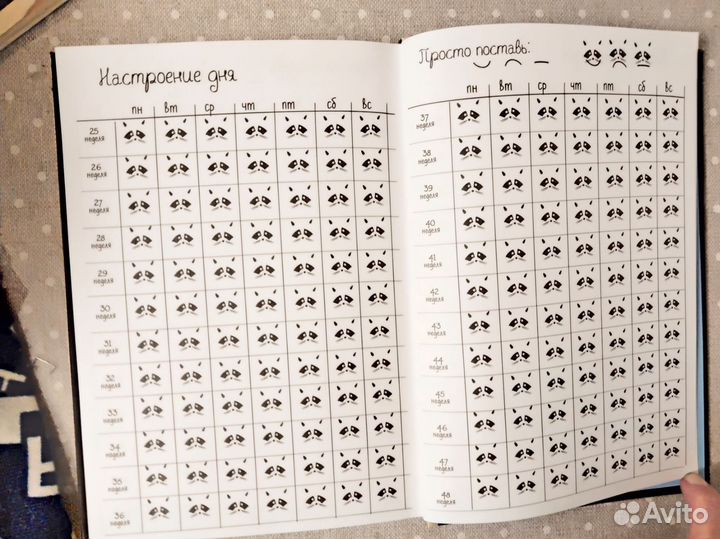 Настроение дня
пн вт ср чт пт сб вс
25
неделя
26
неделя
27
неделя
28
неделя
29
неделя
30
неделя
31
неделя
32
неделя
33
неделя
34
неделя
35
неделя
36
неделя
Просто поставь:
пн вт ср чт пт сб вс
37
неделя
38
неделя
39
неделя
40
неделя
41
неделя
42
неделя
43
неделя
44
неделя
45
неделя
46
неделя
47
неделя
48
неделя
Avito